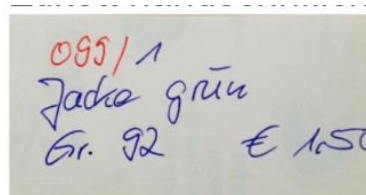 099/1
Jacke grün
Gr. 92 € 1,50